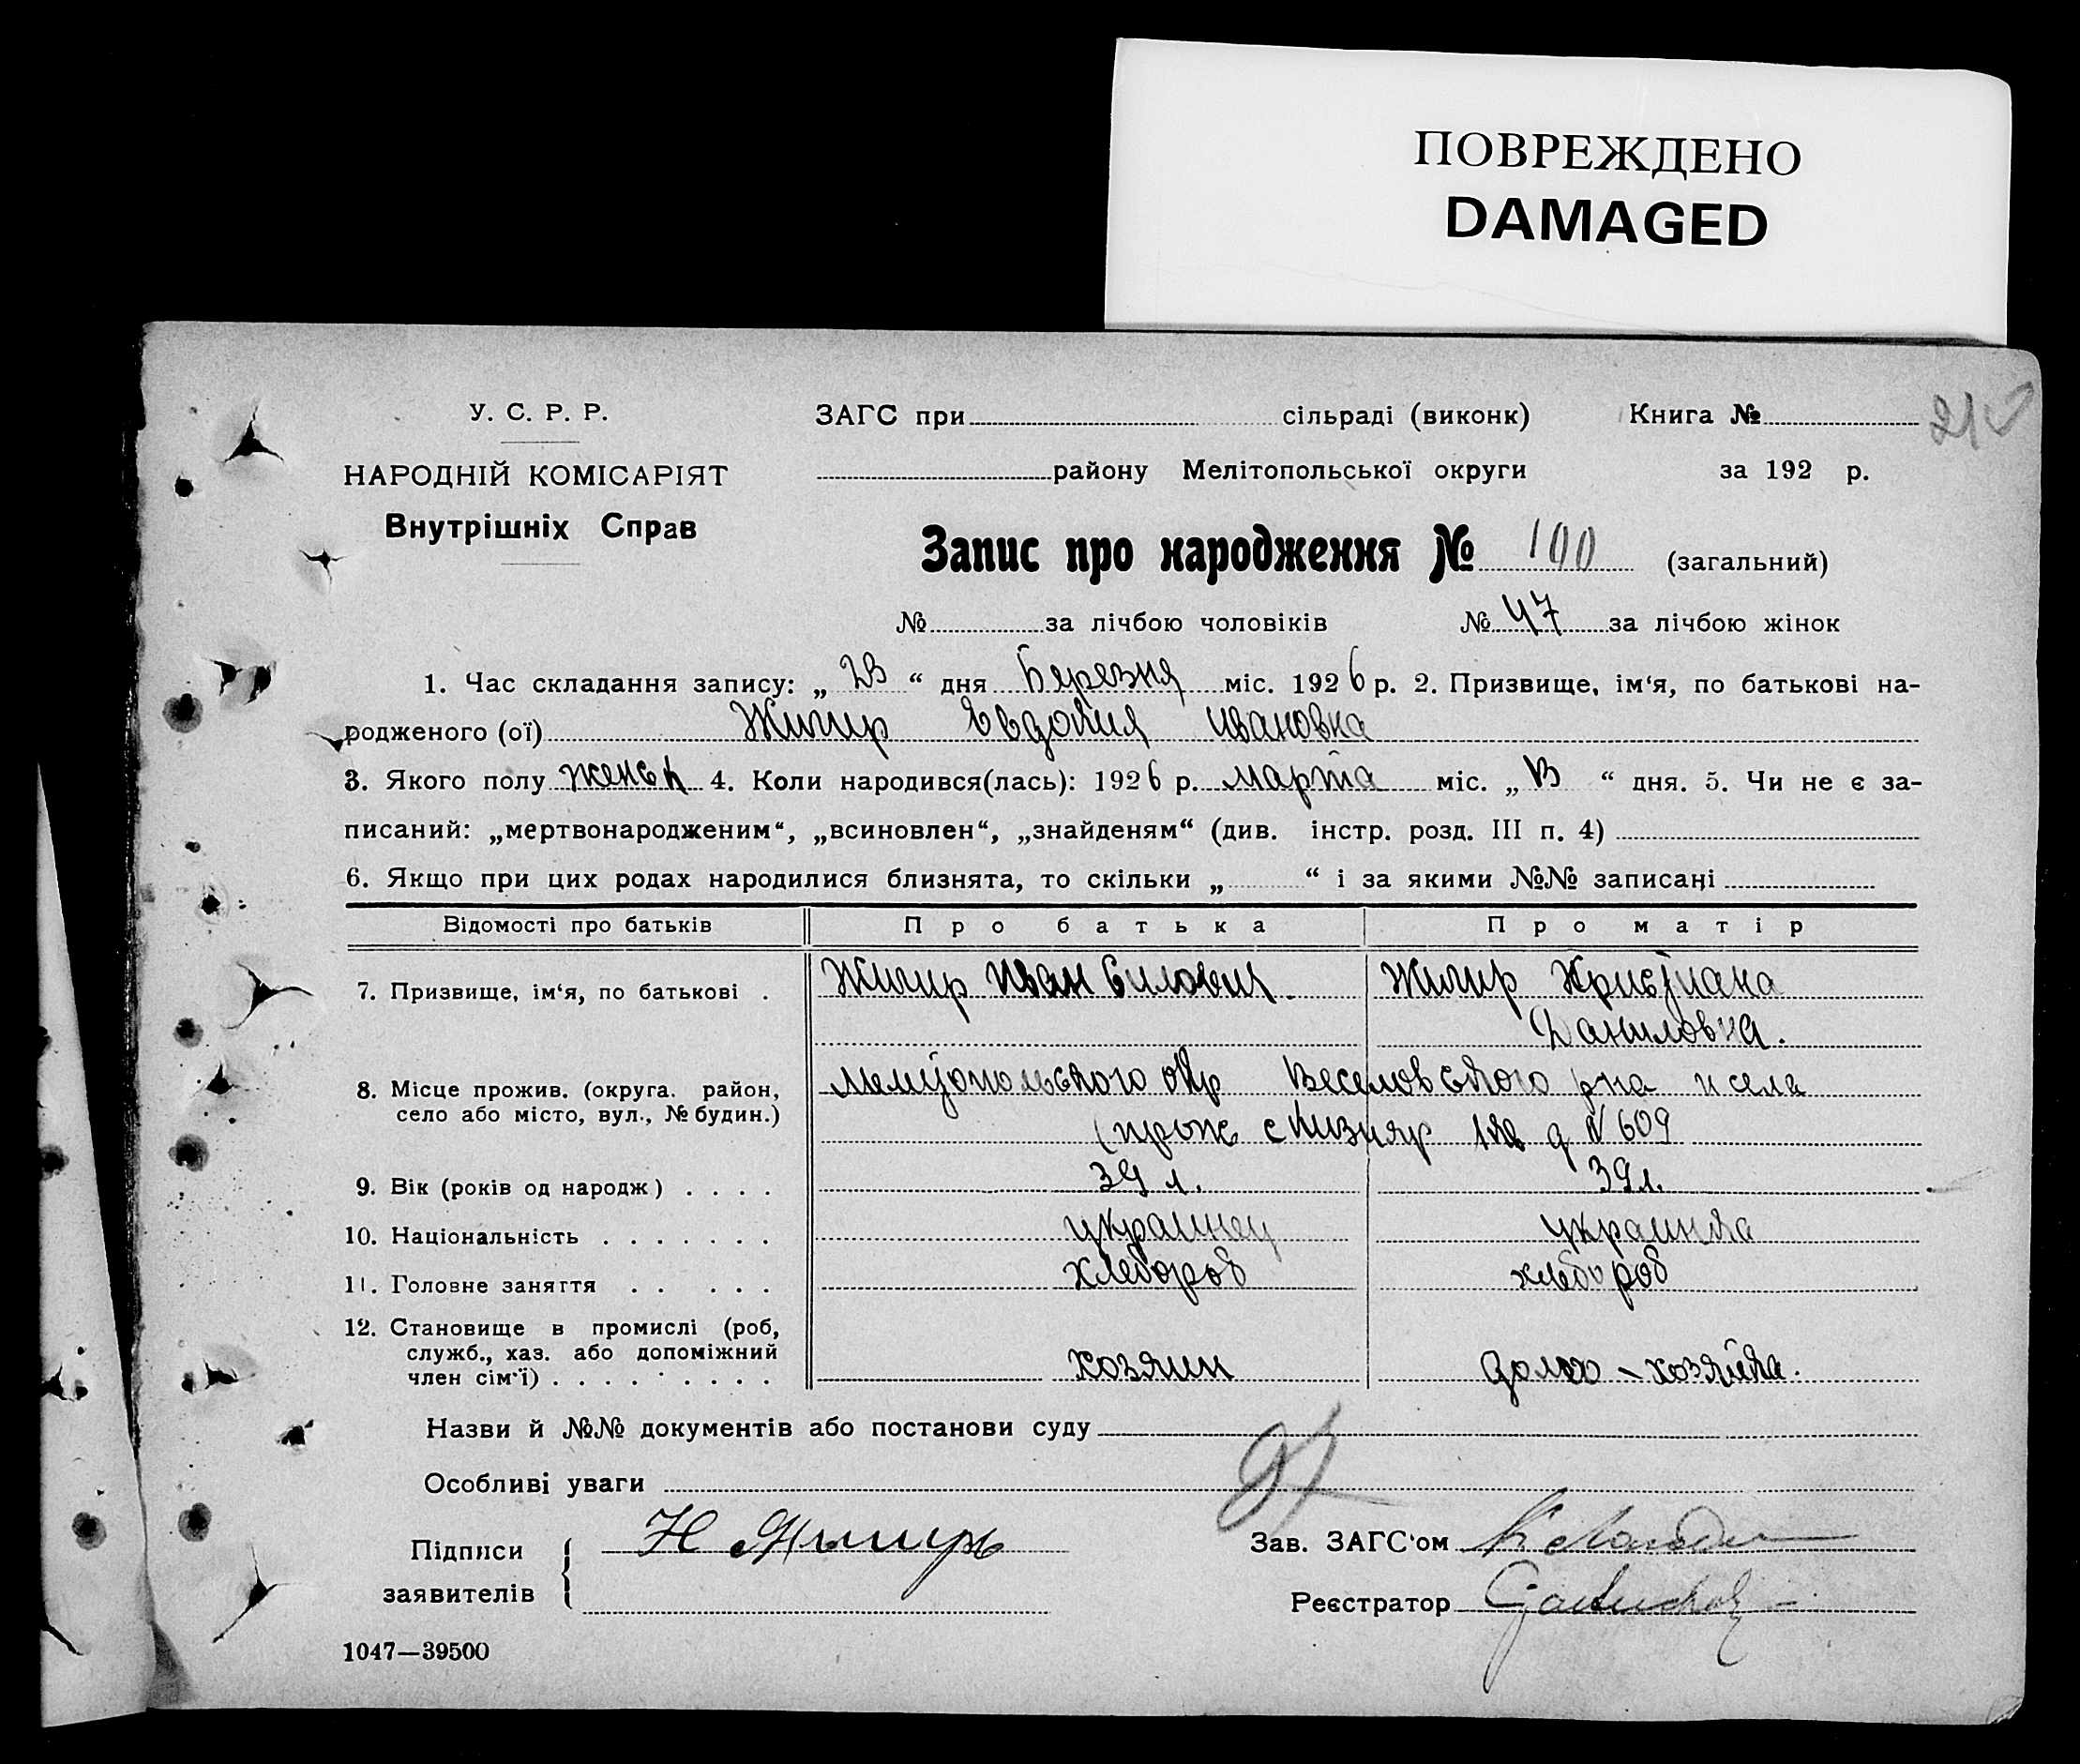 ПОВРЕЖДЕНО
DAMAGED
У. С. Р. Р.
НАРОДНІЙ КОМІСАРІЯТ
Внутрішніх Справ
ЗАГС при сільраді (виконк) Книга №
району Мелітопольської округи за 192 р.
Запис про народження № 100 (загальний)
№ за лічбою чоловіків № 47 за лічбою жінок
1. Час складання запису: „ 23 “ дня Березня міс. 1926 р. 2. Призвище, ім‘я, по батькові на-
родженого (ої) Жигир Евдокия Ивановна
3. Якого полу женск 4. Коли народився(лась): 1926 р. марта міс. „ “ дня. 5. Чи не є за-
писаний: „мертвонародженим“, „всиновлен“, „знайденям“ (див. інстр. розд. III п. 4)
6. Якщо при цих родах народилися близнята, то скільки „ “ і за якими №№ записані
Відомості про батьків Про батька Про матір
7. Призвище, ім‘я, по батькові . Жигир Иван Силович. Жигир
Даниловна.
8. Місце прожив. (округа. район,
село або місто, вул., № будин.)
Мелитопольского окр Веселовского р-на и села
д № 609
9. Вік (років од народж) . . . . 39 л. 39 л.
10. Національність . . . . . . . украинец украинка
11. Головне заняття . . . . . хлебороб хлебороб
12. Становище в промислі (роб,
служб., хаз. або допоміжний
член сім‘ї) . . . . . . . . . хозяин домо-хозяйка.
Назви й №№ документів або постанови суду
Особливі уваги
Підписи
заявителів
Зав. ЗАГС‘ом
Реєстратор
1047—39500